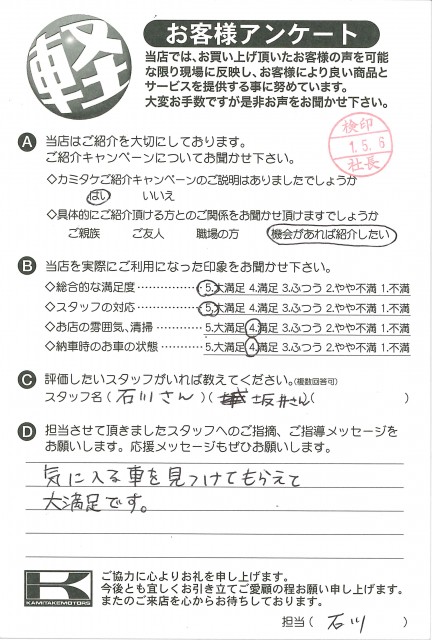 軽
お客様アンケート
当店では、お買い上げ頂いたお客様の声を可能
な限り現場に反映し、お客様により良い商品と
サービスを提供する事に努めています。
大変お手数ですが是非お声をお聞かせ下さい。
検印
1.5.6
社長
A 当店はご紹介を大切にしております。
ご紹介キャンペーンについてお聞かせ下さい。
◇カミタケご紹介キャンペーンのご説明はありましたでしょうか
はい いいえ
◇具体的にご紹介頂ける方とのご関係をお聞かせ頂けますでしょうか
ご親族 ご友人 職場の方 機会があれば紹介したい
B 当店を実際にご利用になった印象をお聞かせ下さい。
◇総合的な満足度 ・・・・・・・・・・・・・ 5.大満足 4.満足 3.ふつう 2.やや不満 1.不満
◇スタッフの対応 ・・・・・・・・・・・・・ 5.大満足 4.満足 3.ふつう 2.やや不満 1.不満
◇お店の雰囲気、清掃 ・・・・・・・・ 5.大満足 4.満足 3.ふつう 2.やや不満 1.不満
◇納車時のお車の状態 ・・・・・・・・ 5.大満足 4.満足 3.ふつう 2.やや不満 1.不満
C 評価したいスタッフがいれば教えてください。(複数回答可)
スタッフ名 ( 石川さん ) ( 坂井さん ( )
D 担当させて頂きましたスタッフへのご指摘、ご指導メッセージを
お願いします。応援メッセージもぜひお願いします。
気に入る車を見つけてもらえて
大満足です。
K
KAMITAKEMOTORS
ご協力に心よりお礼を申し上げます。
今後とも宜しくお引き立てご愛顧の程お願い申し上げます。
またのご来店を心からお待ちしております。
担当 ( 石川 )